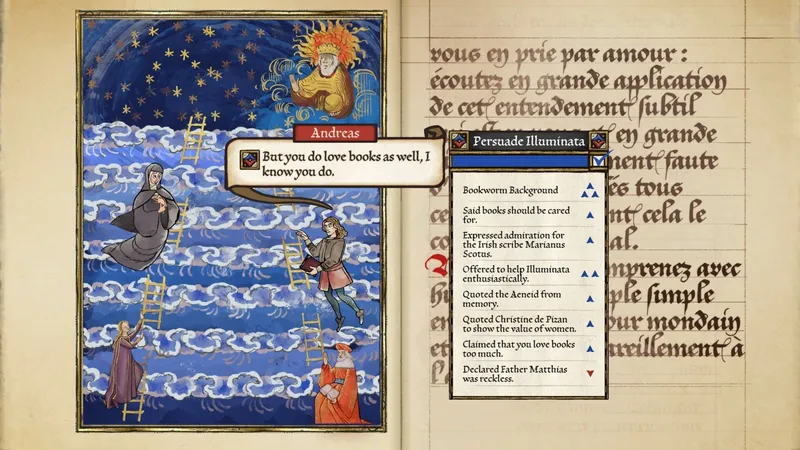 Andreas
But you do love books as well, I
know you do.
Persuade Illuminata
Bookworm Background
Said books should be cared
for.
Expressed admiration for
the Irish scribe Marianus
Scotus.
Offered to help Illuminata
enthusiastically.
Quoted the Aeneid from
memory.
Quoted Christine de Pizan
to show the value of women.
Claimed that you love books
too much.
Declared Father Matthias
was reckless.
vous en prie par amour :
écoutez en grande application
de cet entendement subtil
en grande
faute
tous
cela le
comprenez avec
simple
mondain
pareillement à